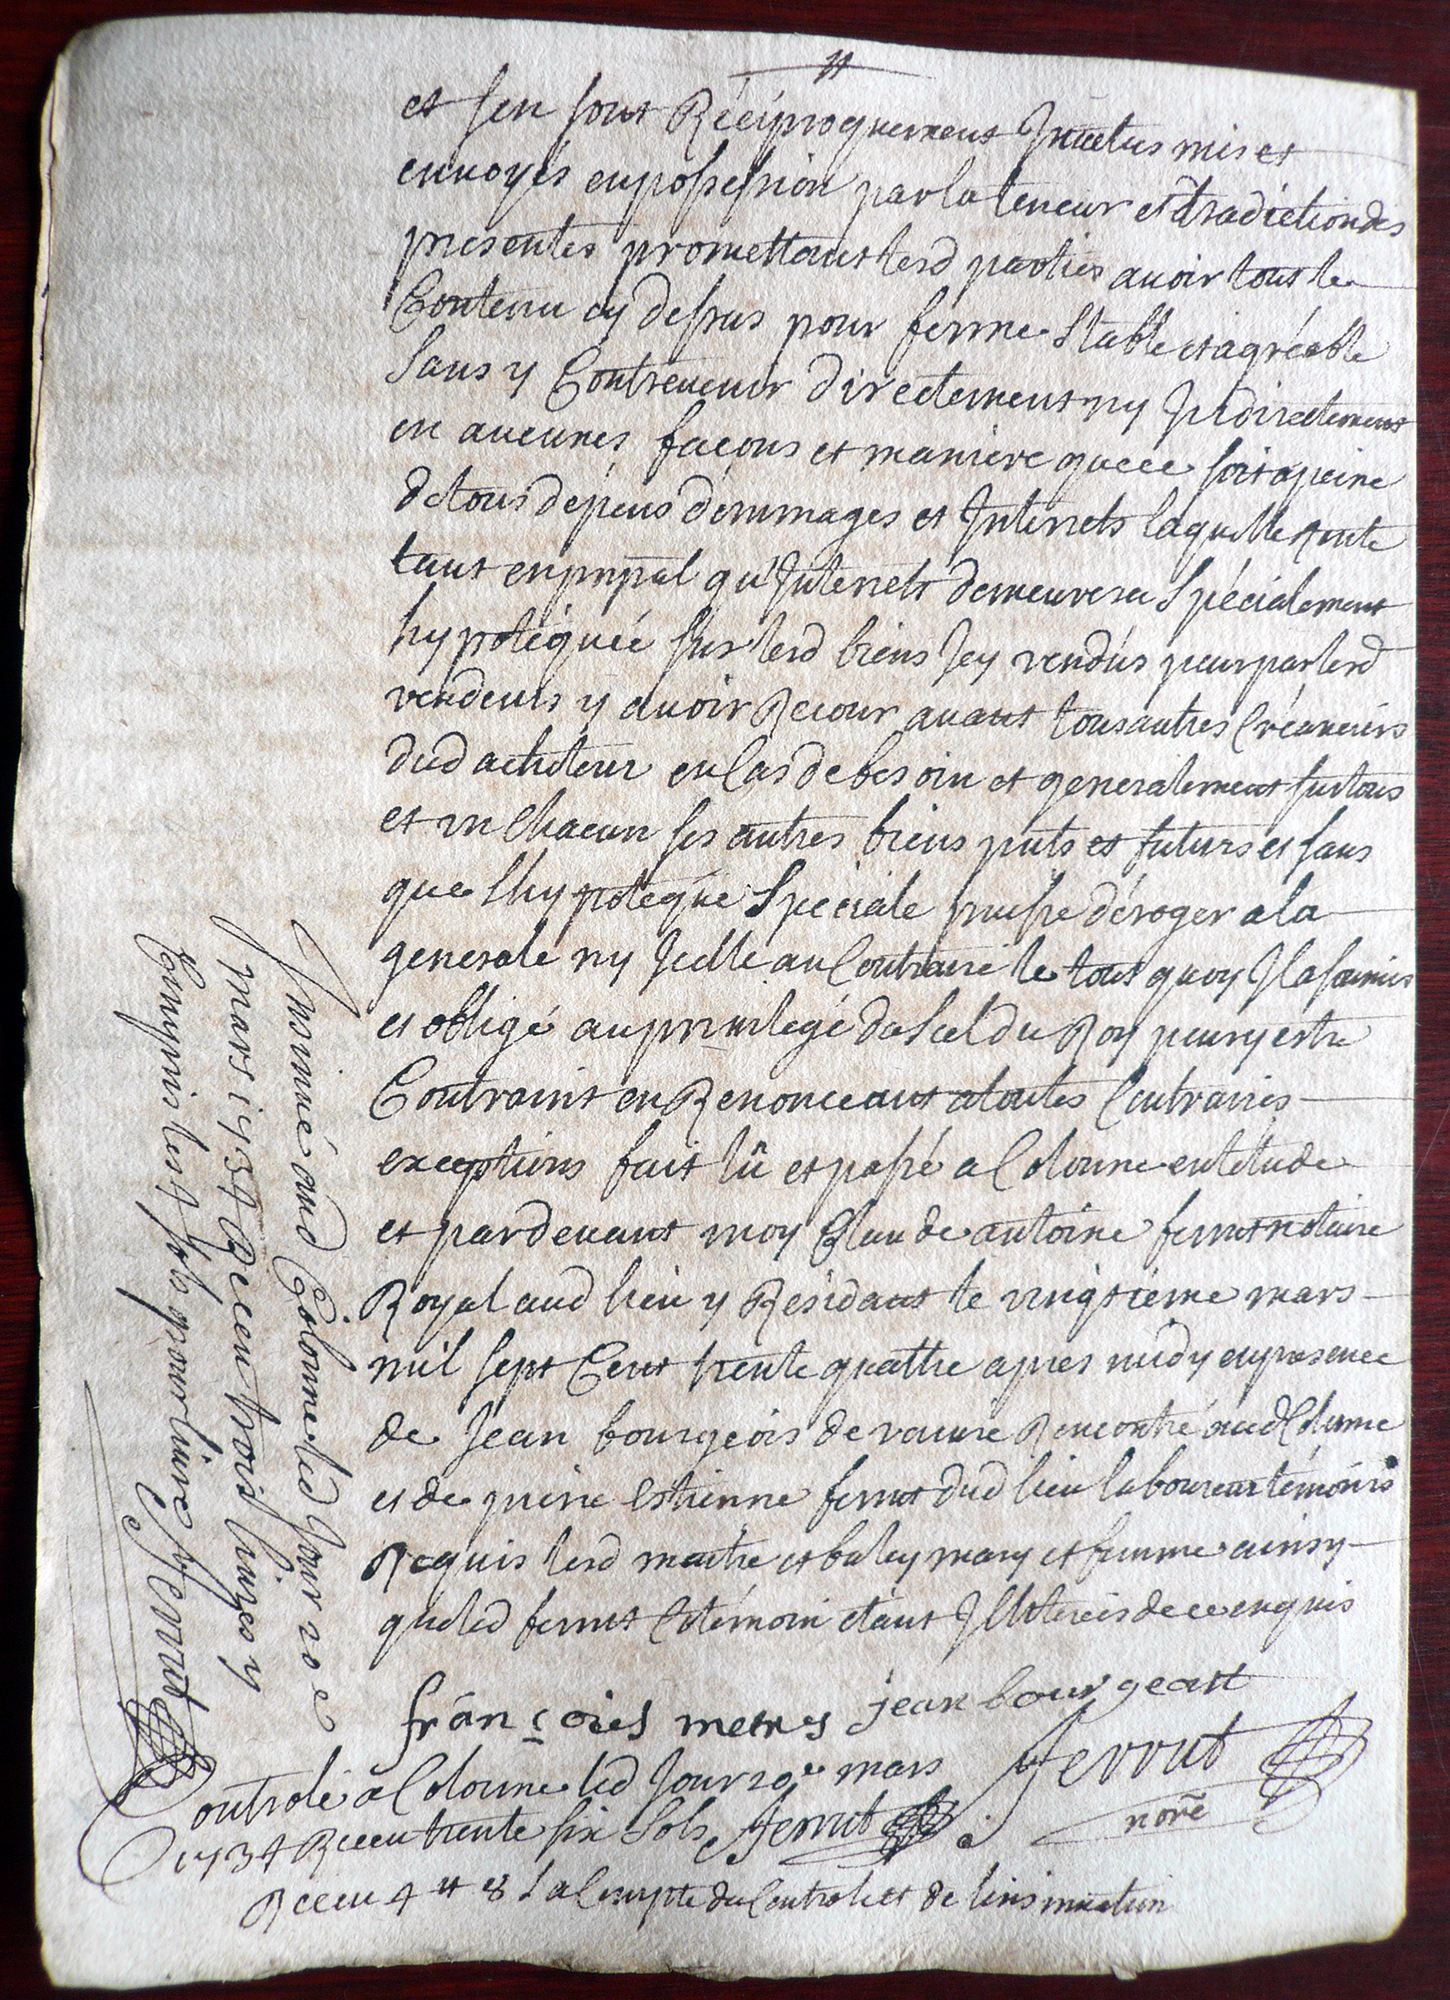 et sen sont Réciproquement Invetus mis et
envoyés en possession par la teneur et tradiction des
presentes promettant lesd parties avoir tout le
Contenu cy dessus pour ferme stable et agréable
sans y Contrevenir directement ny Indirectement
en aucunes façons et maniere que ce soit a peine
de tous dépens dommages et Interrets laquelle rente
tant en pnpal qu'Interrets demeurera spécialement
hypotéquée sur lesd biens Icy vendus pour par lesd
vendeurs y avoir Recour avant tous autres Créanciers
dud acheteur en Cas de besoin et generalement sur tous
et un Chacun ses autres biens pnts et futurs et sans
que lhypoteque speciale puisse déroger a la
generale ny Icelle au Contraire le tout quoy Il a soumis
et obligé au privilegé du scel du Roy pour y estre
Contraint en Renonceant a toutes Contraires
exceptions fait lû et passé a Colonne en létude
et pardevant moy Claude antoine ferrut notaire
Royal aud lieu y Résidant le vingtième mars
mil sept Cent trente quattre apres midy en presence
de Jean bourgeois de Rencontré aud Colonne
et de pierre Estienne ferrut dud lieu laboureur témoins
Requis lesd et mary et femme ainsy
que led ferrut témoin étant Illiterés de ce enquis
françois metres jean bourgeait
ferrut
nore
Controlé a Colonne led Jour 20e mars
1734 Receu trente six sols ferrut
Receu 4 tt 8 s a Compte du Controlle et de linsinuation
Insinué aud Colonne led Jour 20 e
mars 1734 Receu trois livres y
Compris les 4 sols pour livre ferrut